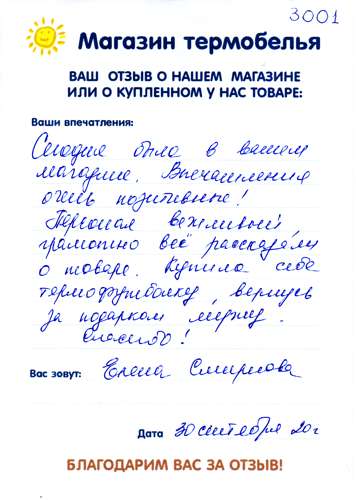 3001
Магазин термобелья
ВАШ ОТЗЫВ О НАШЕМ МАГАЗИНЕ
ИЛИ О КУПЛЕННОМ У НАС ТОВАРЕ:
Ваши впечатления:
Сегодня была в вашем
магазине. Впечатления
очень позитивные!
Персонал вежливый,
грамотно всё рассказали
о товаре. Купила себе
термофутболку, вернусь
за подарком мужу.
Спасибо!
Вас зовут: Елена Смирнова
Дата 30 сентября 20 г
БЛАГОДАРИМ ВАС ЗА ОТЗЫВ!